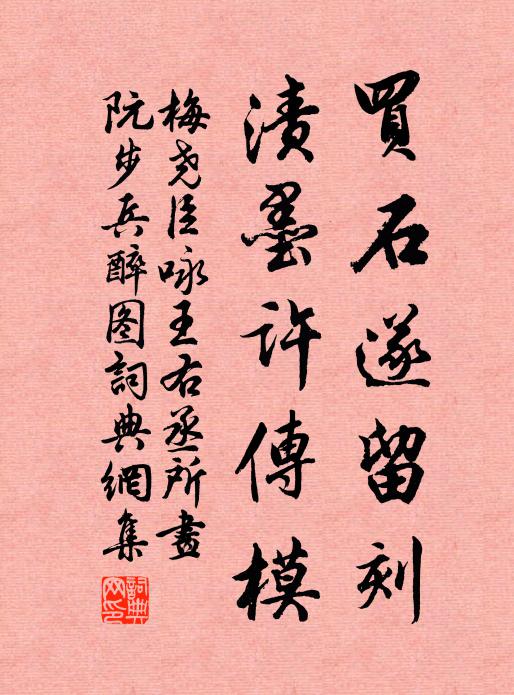 買石遂留刻
漬墨許傳模
梅尧臣咏王右丞所畫
阮步兵醉图詞典網集
詞典網印